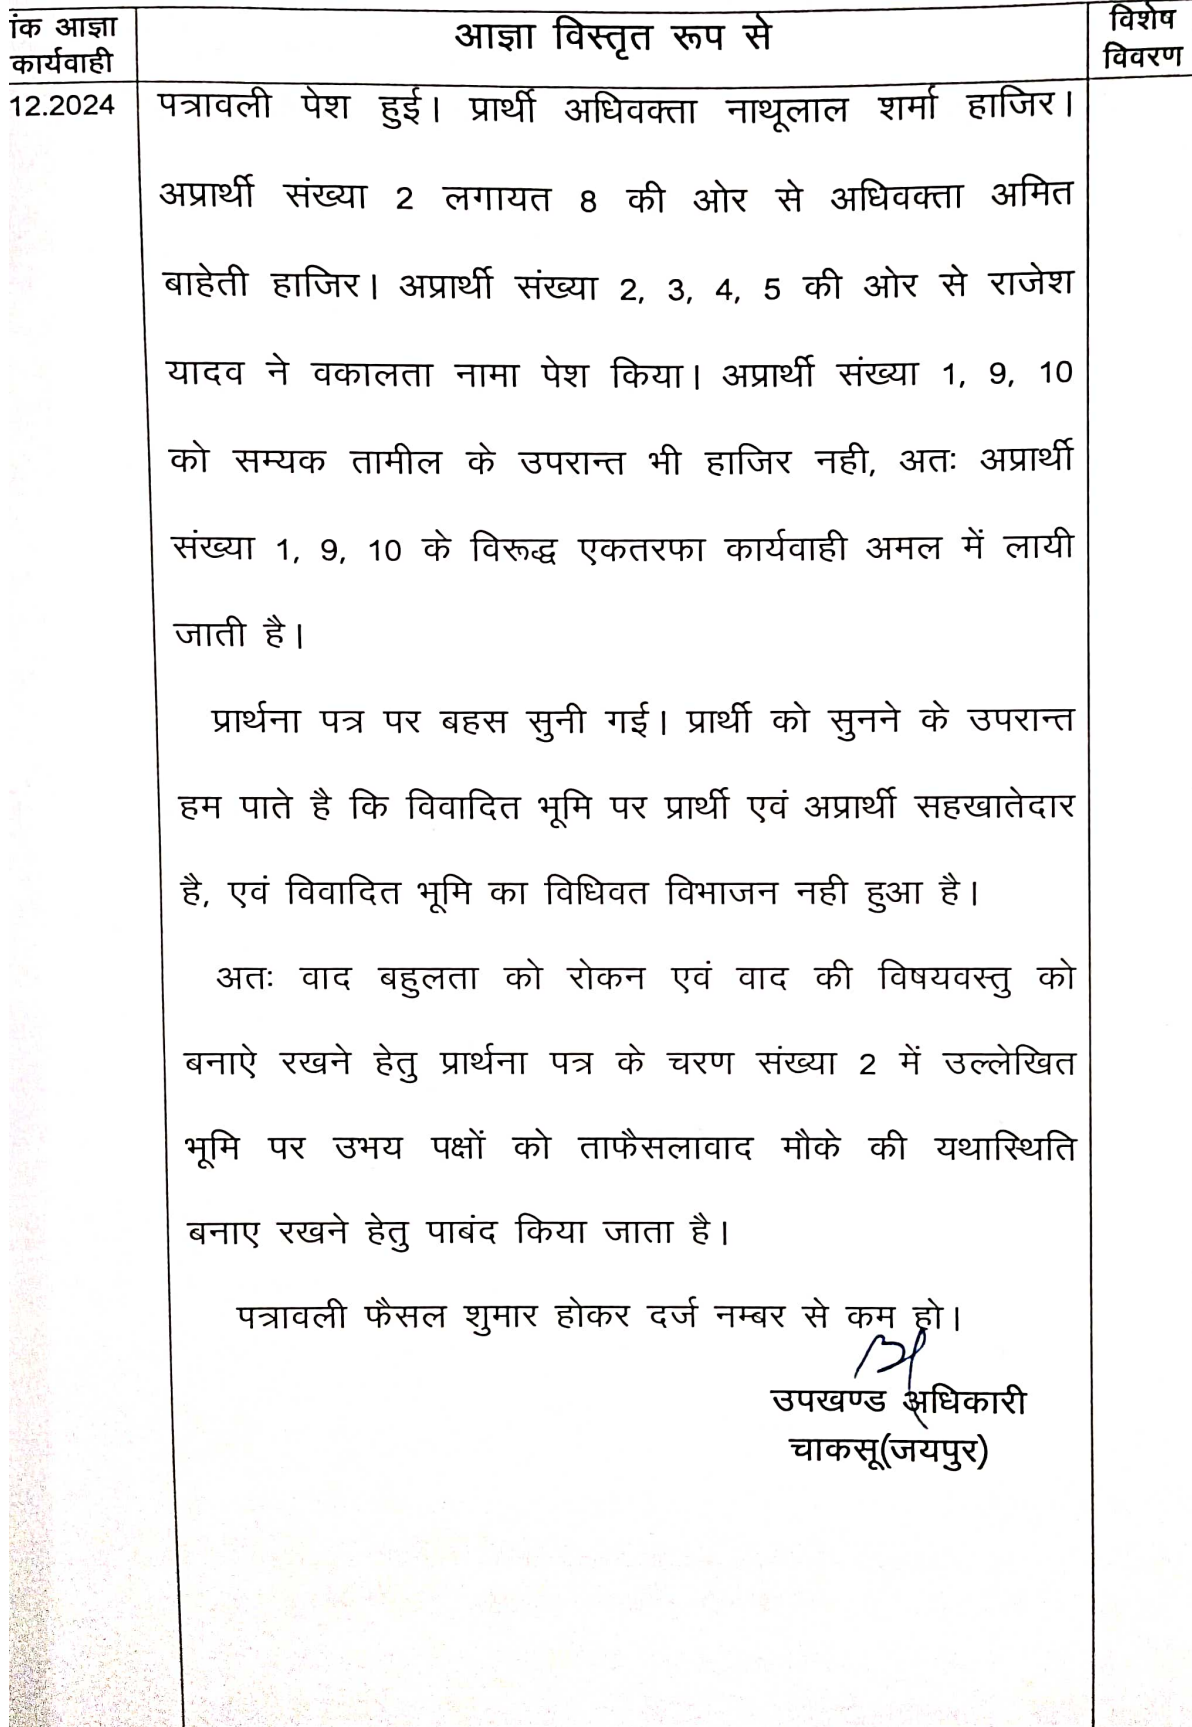 ांक आज्ञा
कार्यवाही
आज्ञा विस्तृत रूप से
विशेष
विवरण
12.2024
पत्रावली पेश हुई। प्रार्थी अधिवक्ता नाथूलाल शर्मा हाजिर।
अप्रार्थी संख्या 2 लगायत 8 की ओर से अधिवक्ता अमित
बाहेती हाजिर। अप्रार्थी संख्या 2, 3, 4, 5 की ओर से राजेश
यादव ने वकालता नामा पेश किया। अप्रार्थी संख्या 1, 9, 10
को सम्यक तामील के उपरान्त भी हाजिर नही, अतः अप्रार्थी
संख्या 1, 9, 10 के विरूद्ध एकतरफा कार्यवाही अमल में लायी
जाती है।
प्रार्थना पत्र पर बहस सुनी गई। प्रार्थी को सुनने के उपरान्त
हम पाते है कि विवादित भूमि पर प्रार्थी एवं अप्रार्थी सहखातेदार
है, एवं विवादित भूमि का विधिवत विभाजन नही हुआ है।
अतः वाद बहुलता को रोकन एवं वाद की विषयवस्तु को
बनाऐ रखने हेतु प्रार्थना पत्र के चरण संख्या 2 में उल्लेखित
भूमि पर उभय पक्षों को ताफैसलावाद मौके की यथास्थिति
बनाए रखने हेतु पाबंद किया जाता है।
पत्रावली फैसल शुमार होकर दर्ज नम्बर से कम हो।
उपखण्ड अधिकारी
चाकसू(जयपुर)